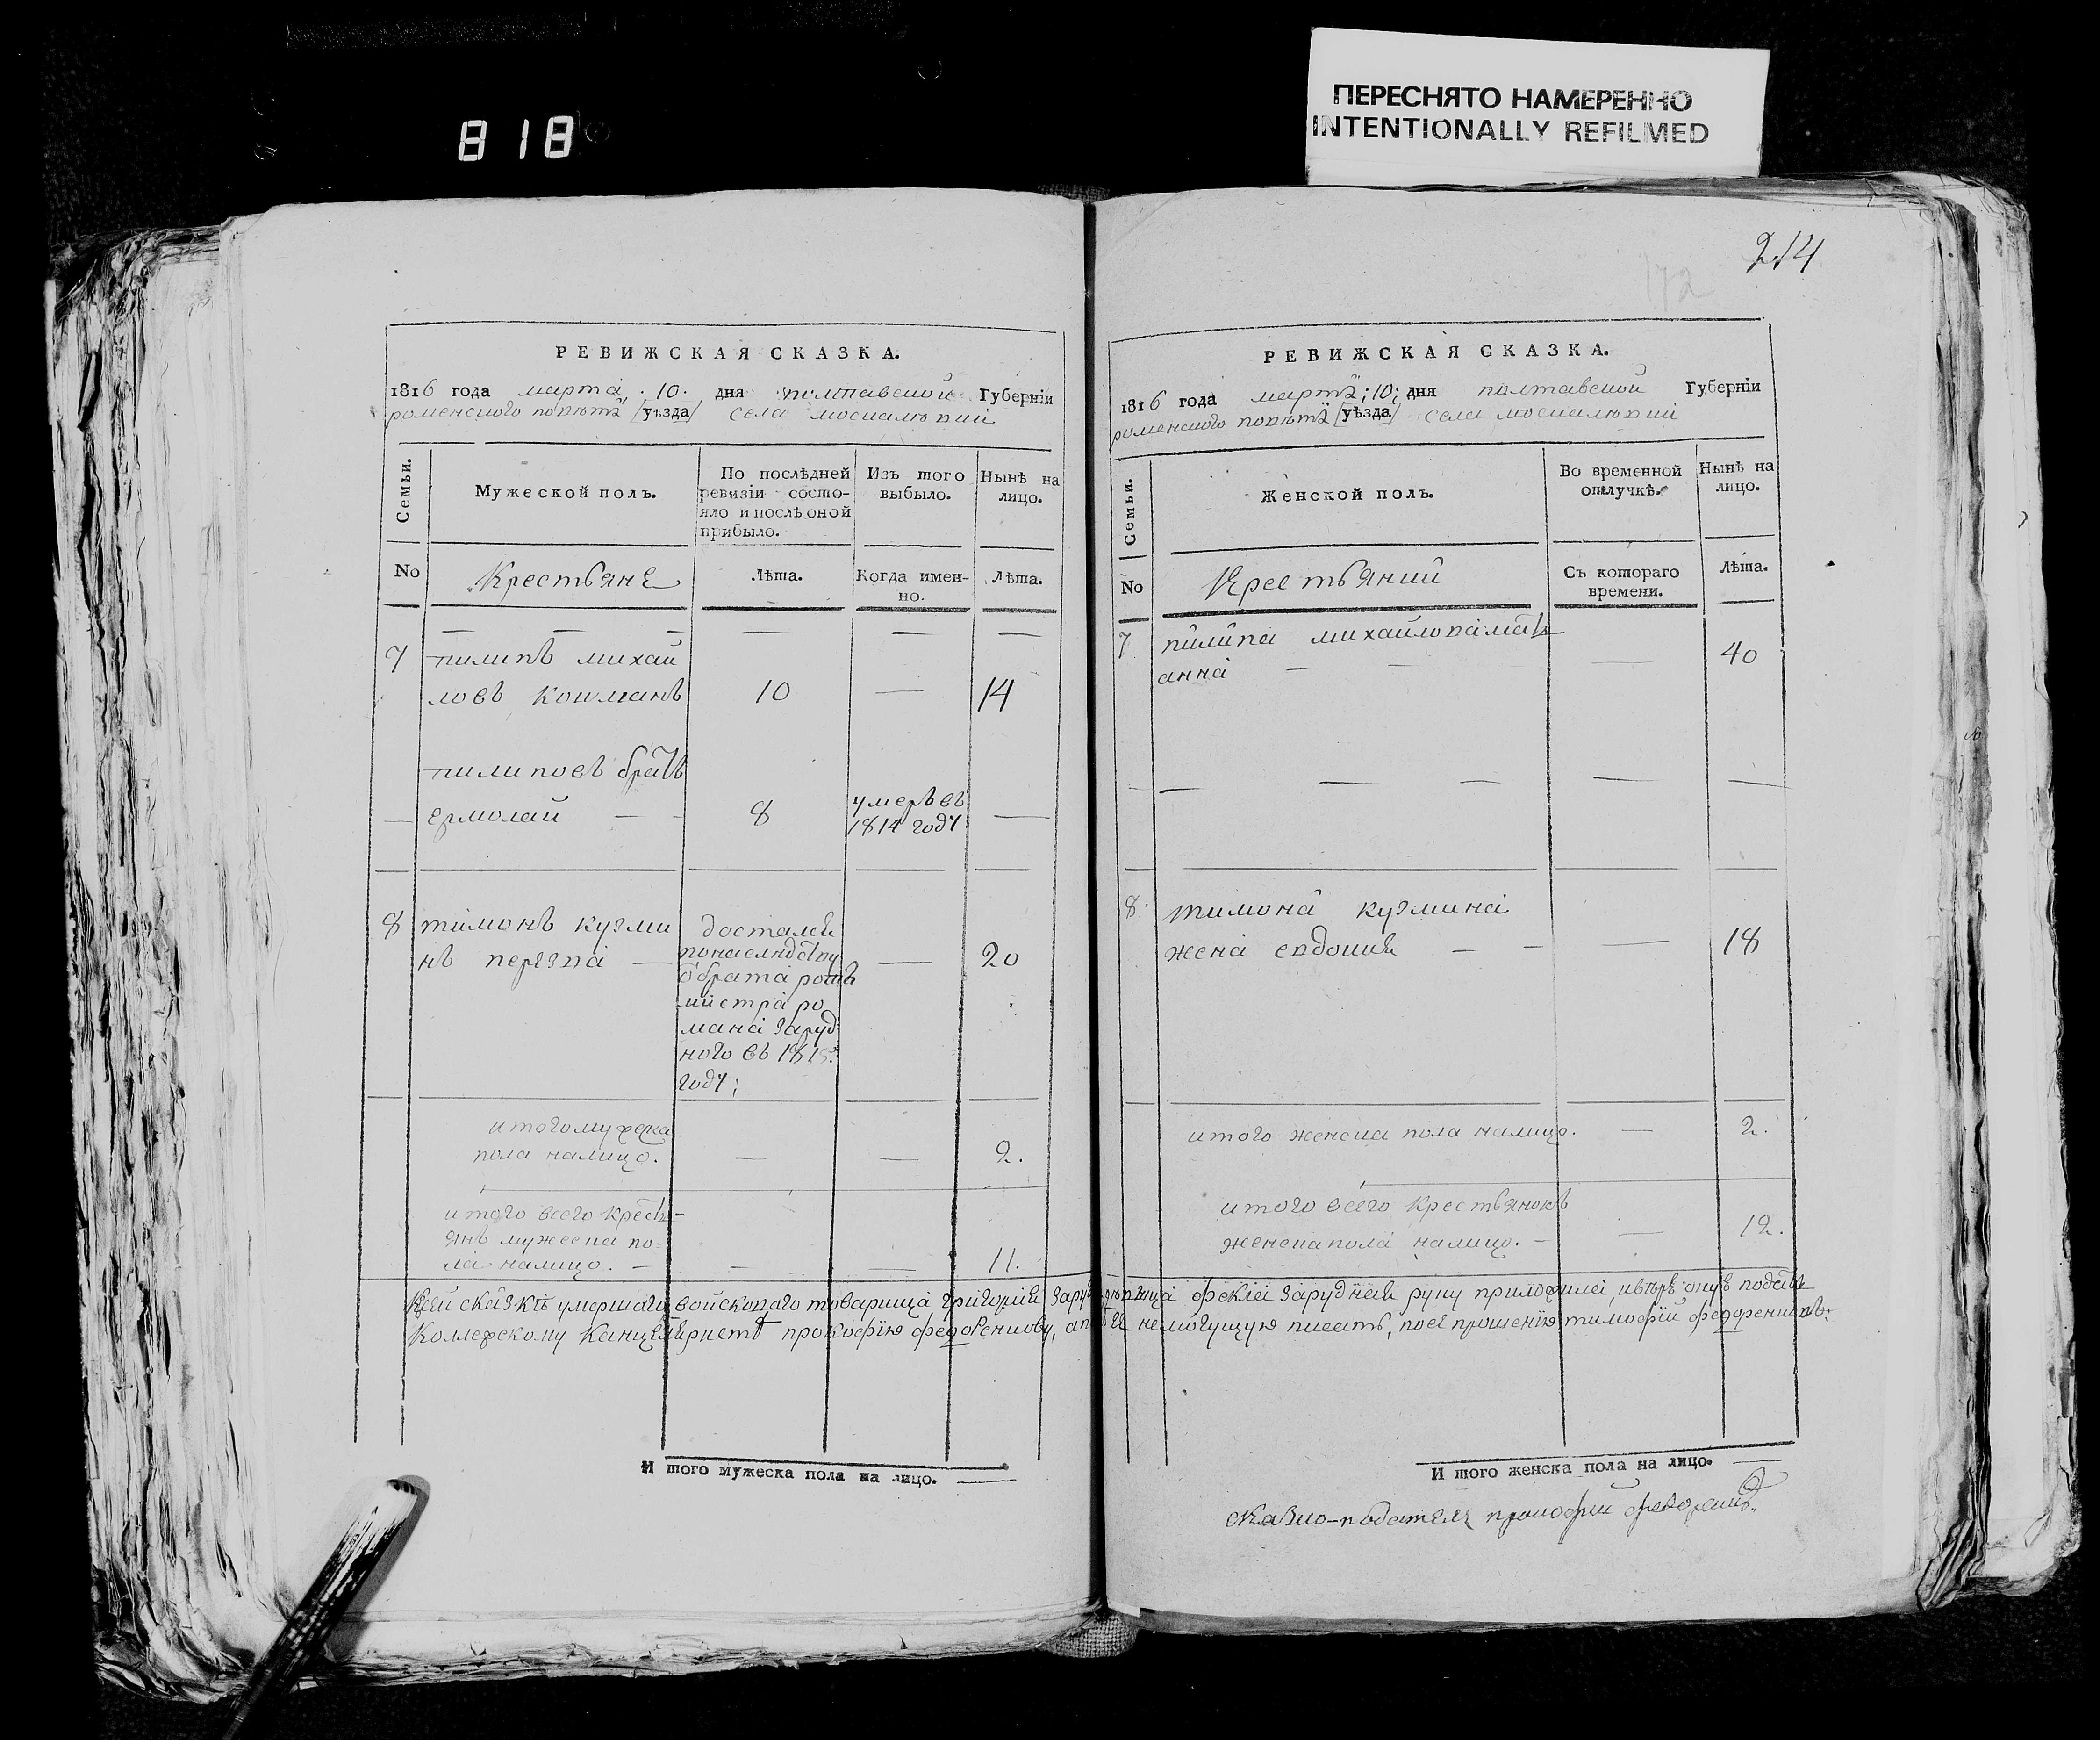 818
ПЕРЕСНЯТО НАМЕРЕННО
INTENTIONALLY REFILMED
214
172
РЕВИЖСКАЯ СКАЗКА.
1816 года марта . 10. дня полтавской Губерніи
роменского повѣта уѣзда села москалювки
Семьи.
Мужеской полъ.
По послѣдней
ревизіи состо-
яло и послѣ оной
прибыло.
Изъ того
выбыло.
Нынѣ на
лицо.
No
Крестьяне
Лѣта.
Когда имен-
но.
Лѣта.
7 пилипъ михай
ловъ 10 — 14
пилиповъ братъ
ермолай — 8 умеръ въ
1814 году —
8 тимонъ кузми
нъ — 20
достался
по наследству
о брата ротъ
мистра ро
мана заруд
ного въ 1815.
году;
итого мужеска
пола налицо. — — 2.
итого всего кресть-
янъ мужеска по-
ла налицо. — — — 11.
РЕВИЖСКАЯ СКАЗКА.
1816 года марта ;10; дня полтавской Губерніи
роменского повѣта уѣзда села москалювки
Семьи.
Женской полъ.
Во временной
отлучкѣ.
Нынѣ на
лицо.
No
Крестьянки
Съ котораго
времени.
Лѣта.
7 пилипа михайлова мать
анна — — — 40
8. тимона кузмина
жена евдокия — — — 18
итого женска пола налицо. — 2.
итого всего крестьянокъ
женска пола налицо. — — 12.
Ксей скаскѣ умершаго войскового товарища григория фекла зарудная руку приложила, подать
Коллежскому Канцеляристу прокофию федоренкову, а немогущую писать, по ее прошению тимофій федоренковъ:
И того мужеска пола на лицо. —
И того женска пола на лицо. —
сказко-податель прокофии